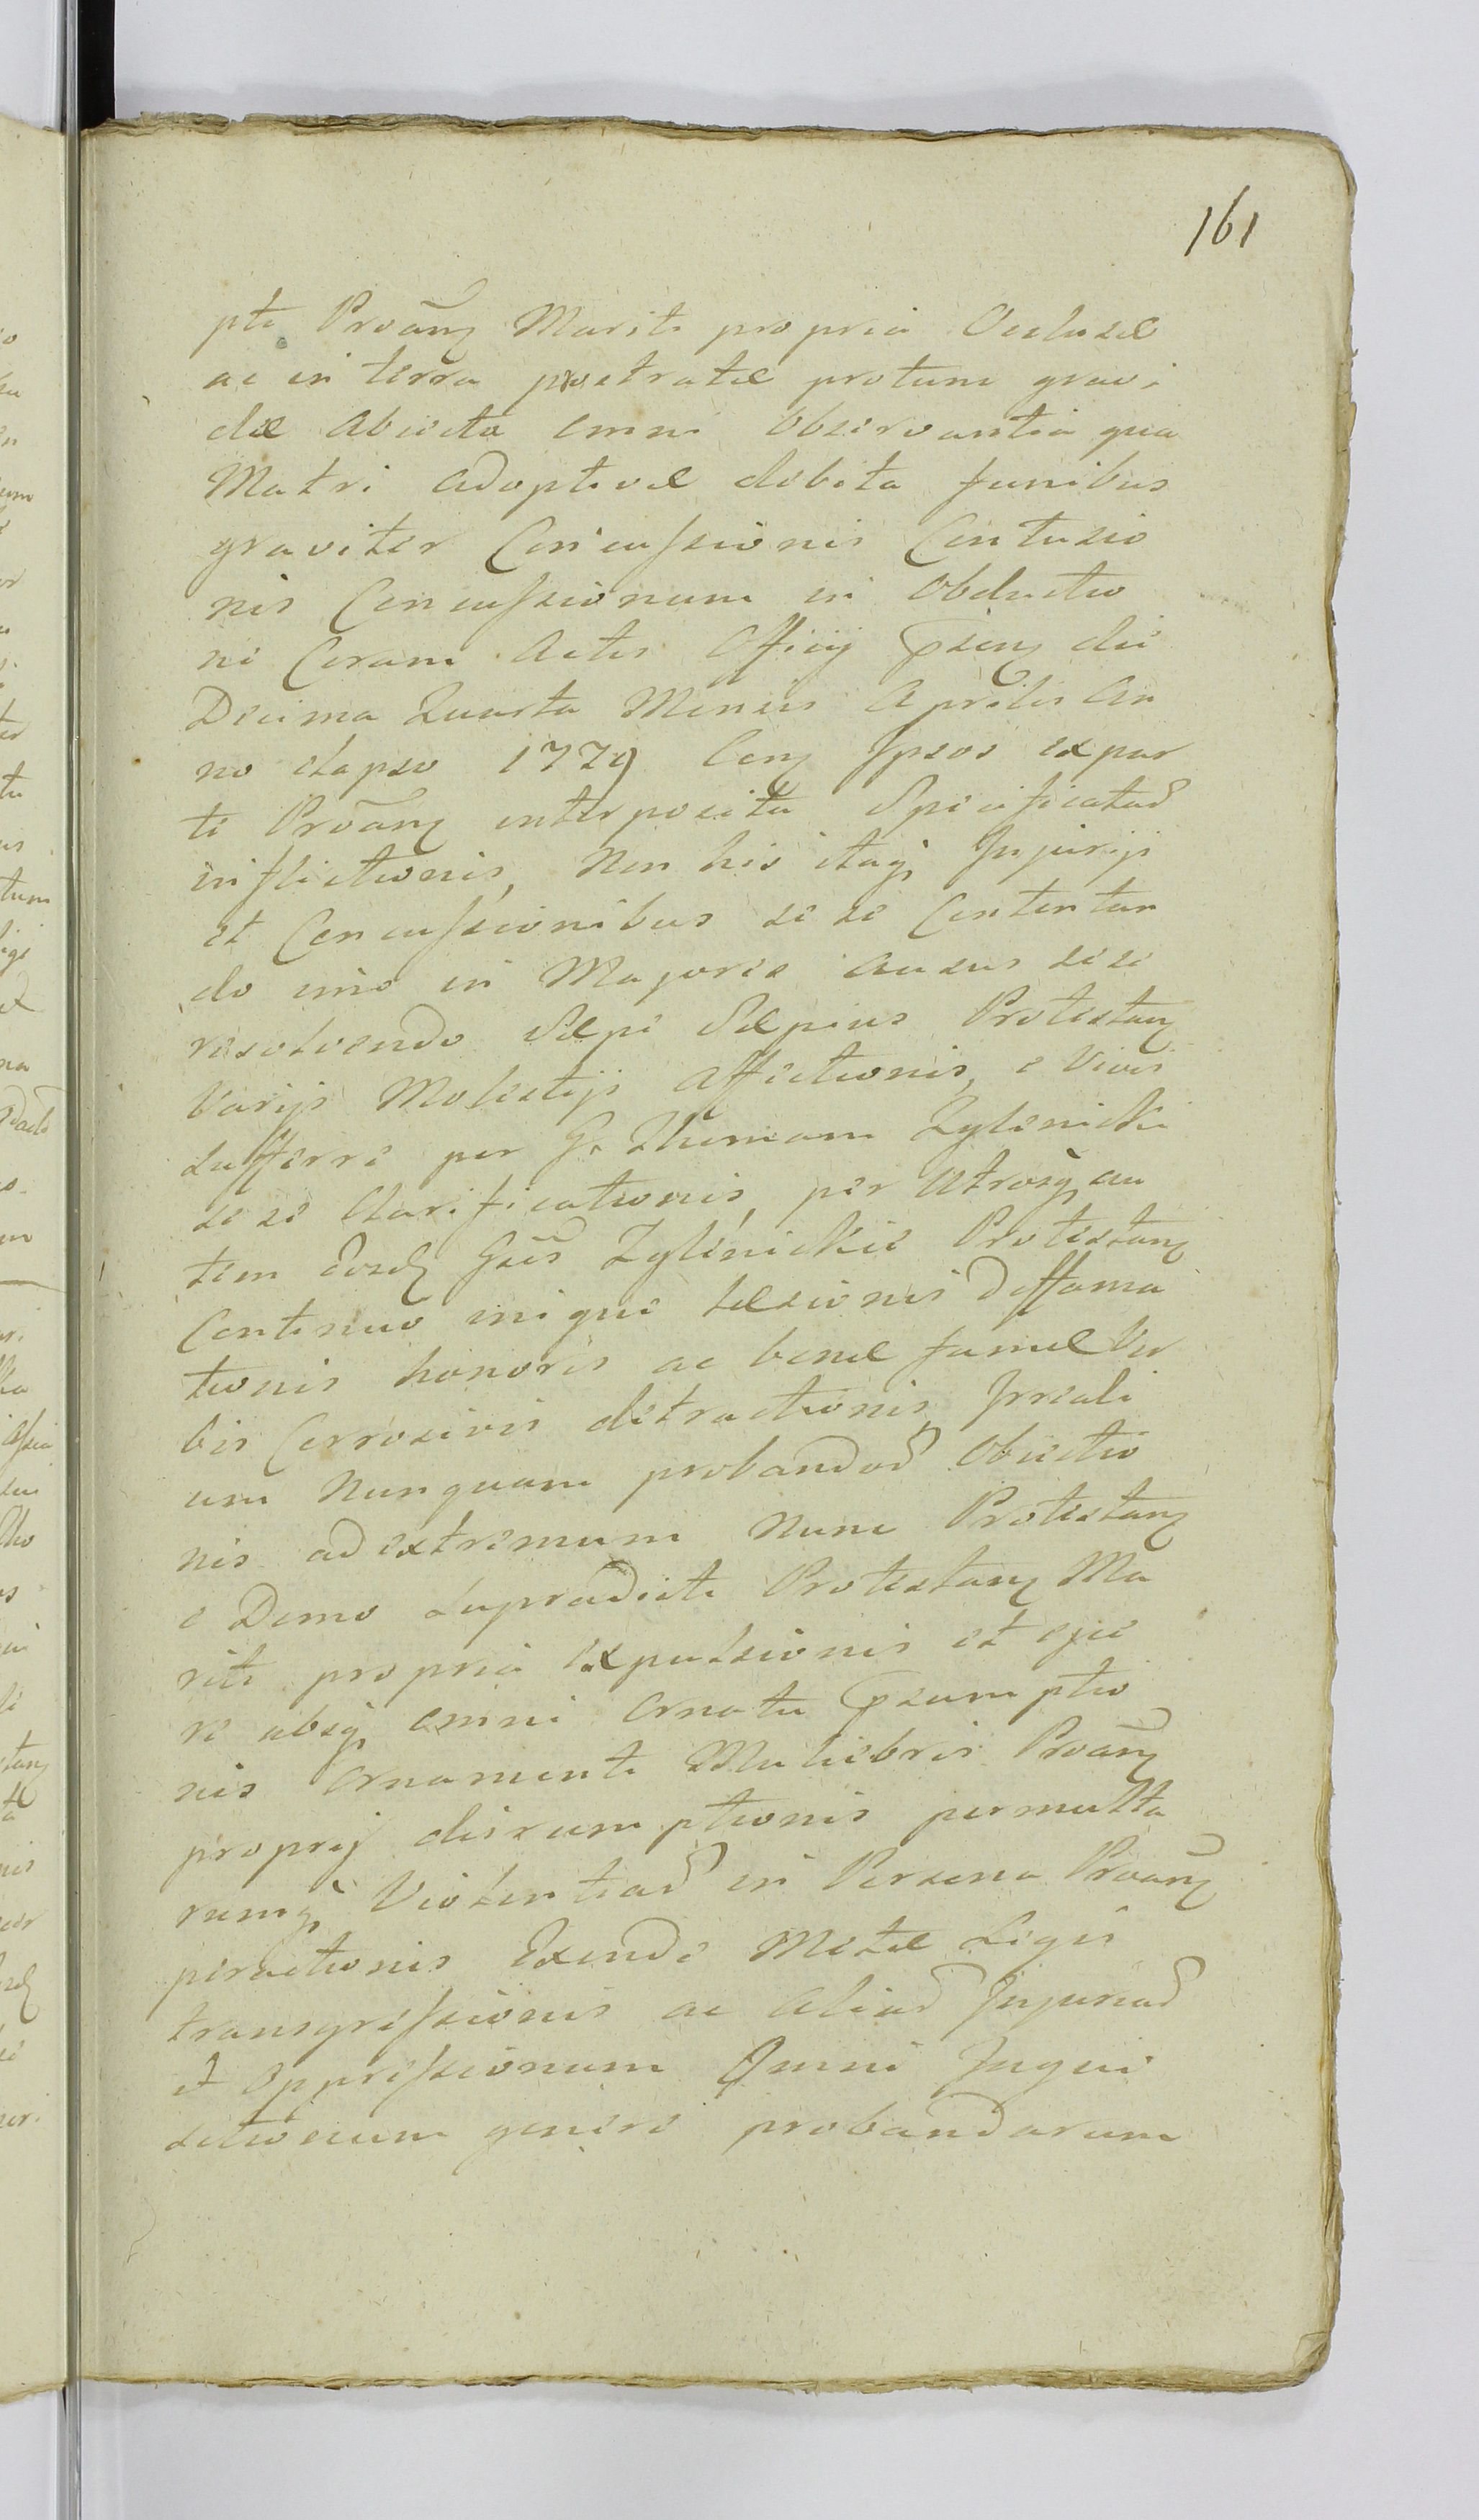 161
pti Proãnʒ Mariti propria Occlusæ
ac in terra prostratæ protunc gravi
dæ abiecta omni Observantia qua
Matri adoptivæ debita funibus
graviter Concussionis Contusio
nis Concussionum in Obductio
ne Coram Actis Officij Psenʒ die
Decima Quarta Mensis Aprilis An
no elapso 1779 Conʒ Ipsos ex par
te Proãnʒ interposita Specificataꝝ
inflictionis, Non his itaqꝫ Injurijs
et Concussionibus sese Contentan
do imo in Majores ausus sese
resolvendo Sæpe Sæpius Protestanʒ
Varijs Molestijs Affectionis, e Vivis
sufferre per G. Thomam Zylinicki
sese Clarificationis, per Utrosqꝫ au
tem Eosdʒ Gsõs Zylinickie Protestanʒ
Continuo inique Læsionis Deffama
tionis honoris ac bonæ famæ Ver
bis Corrosivis detractionis, Irreali
um Nunquam probandoꝝ Obiectio
nis ad extremum Nunc Protestanʒ
e Domo supradicti Protestanʒ Ma
riti propria Expulsionis et ejice
re absqꝫ omni Ornatu Psumptio
nis Ornamenti Muliebris Proãnʒ
proprij disrumptionis permulta
rumqꝫ Violentiaꝝ in Persona Proãnʒ
peractionis Exinde Metæ Legis
transgressionis ac aliaꝝ Injuriaꝝ
et Oppressionum Omni Inqui
sitionum genere probandarum